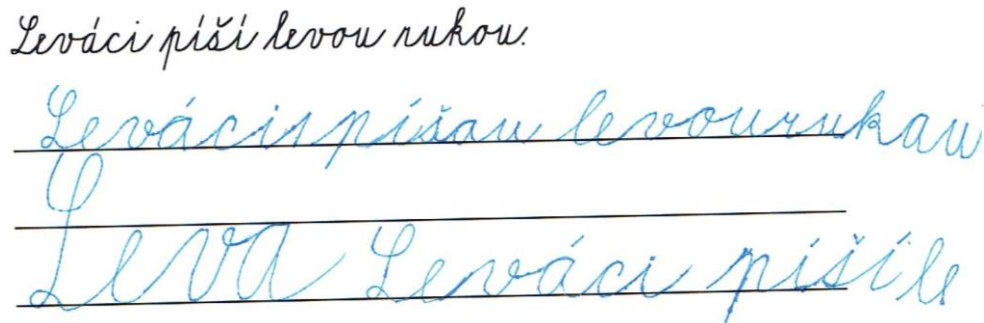 Leváci píší levou rukou.
Levácis píšou levou rukou
Leva Leváci píší le